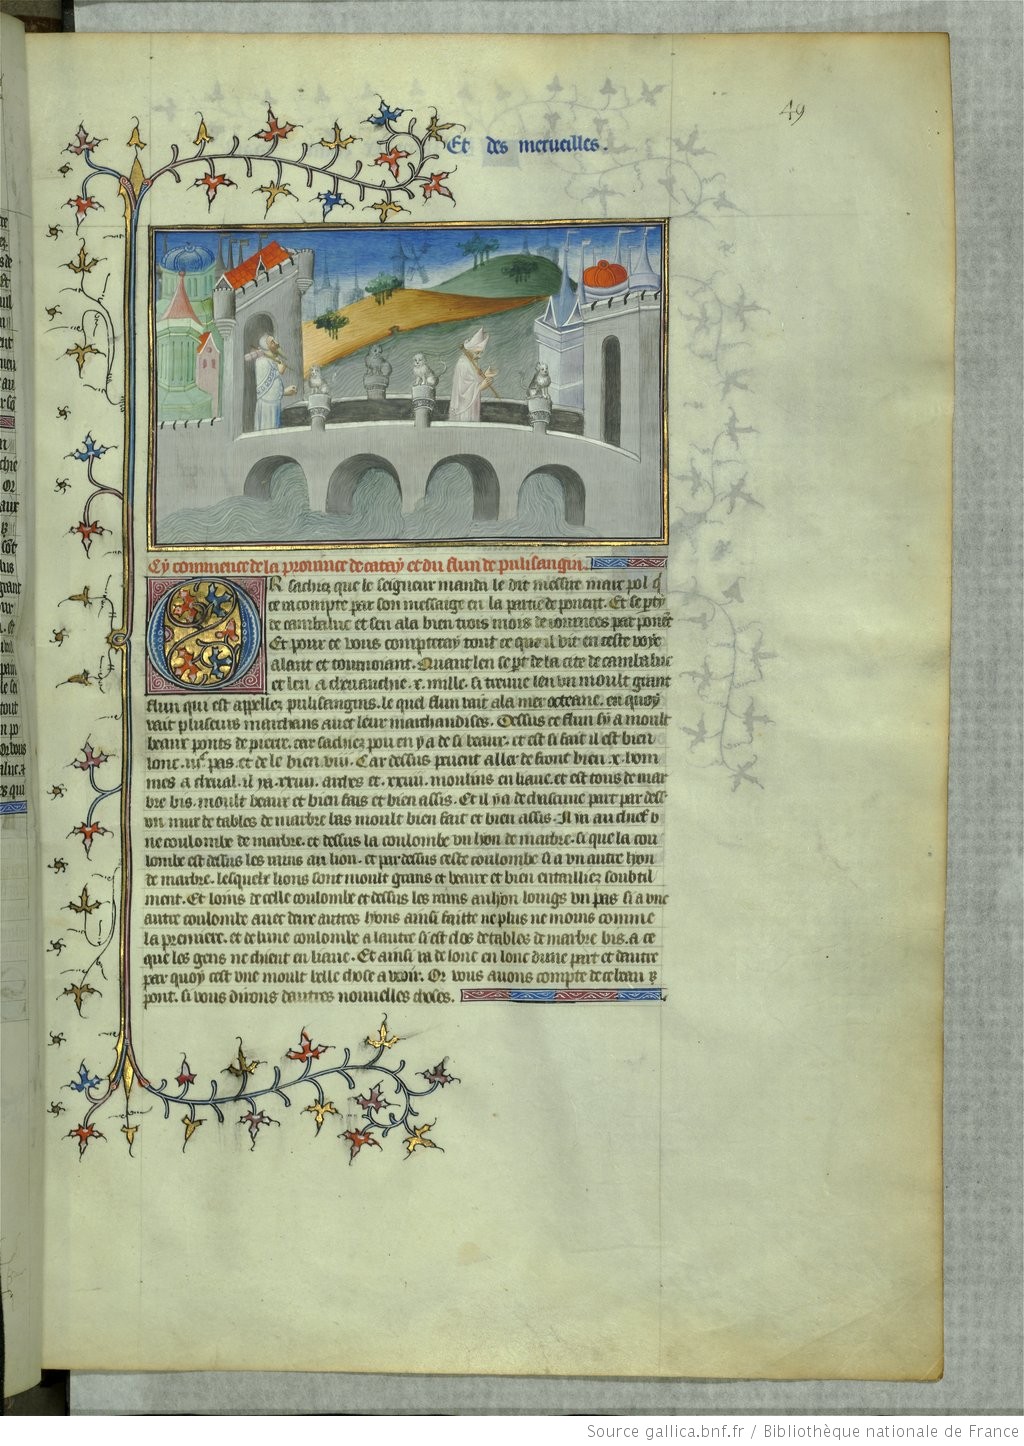 49
Et des merueilles.
Cy commence de la prouince de catay et du flun de pulisangin.
OR sachiez que le seigneur manda le dit messire marc pol q̃
ce racompte par son messaige en la partie de ponent. Et se pty
de cambaluc et sen ala bien trois mois de iournees par ponẽt
Et pour ce vous compteray tout ce que il vit en ceste voye
alant et tournoiant. Quant len se pt de la cite de cambaluc
et len a cheuauche .x. mille. si treuue len vn moult grant
flun qui est appellez pulisangins. le quel flun vait a la mer occeane. en quoy
vait pluseurs marchans auec leur marchandises. Dessus ce flun sy a moult
beaux ponts de pierre. car sachiez pou en y a de si beaux. et est si fait il est bien
lonc .iijᶜ. pas. et de le bien .viij. Car dessus peuent aller de front bien .x. hom
mes a cheual. il ya .xxiiij. arches et .xxiiij. moulins en liaue. et est tous de mar
bre bis. moult beaux et bien fais et bien assis. Et il y a de chascune part par dess⁹
vn mur de tables de marbre bas moult bien fait et bien assis. Il ya au chief v
ne coulombe de marbre. et dessus la coulombe vn lyon de marbre. si que la cou
lombe est dessus les rains au lion. et par dessus ceste coulombe si a vn autre lyon
de marbre. lesquelx lions sont moult grans et beaux et bien entailliez soubtil
ment. Et loins de celle coulombe et dessus les rains au lyon loings vn pas si a vne
autre coulombe auec deux autres lyons ainsi faitte ne plus ne moins comme
la premiere. et de lune coulombe a lautre si est clos de tables de marbre bis. a ce
que les gens ne chieent en liaue. Et ainsi va de lonc en lonc dune part et dautre
par quoy cest vne moult belle chose a veoir. Or vous auons compte de ce beau
pont. si vous dirons dautres nouuelles choses.
Source gallica.bnf.fr / Bibliothèque nationale de France